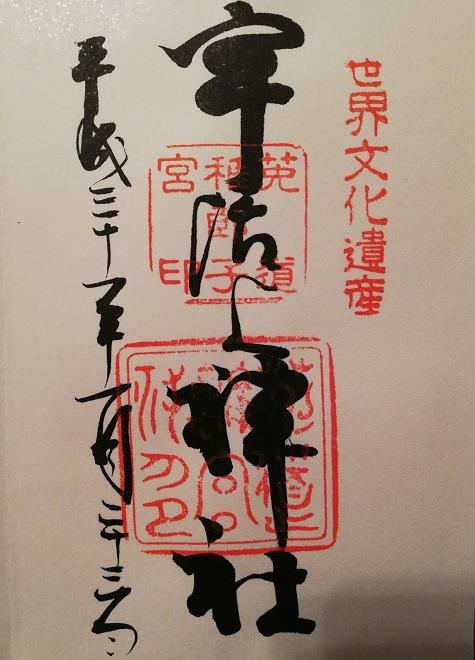 世界文化遺産
宇治上神社
菟道
稚郎子
宮印
平成三十一年一月二十三日